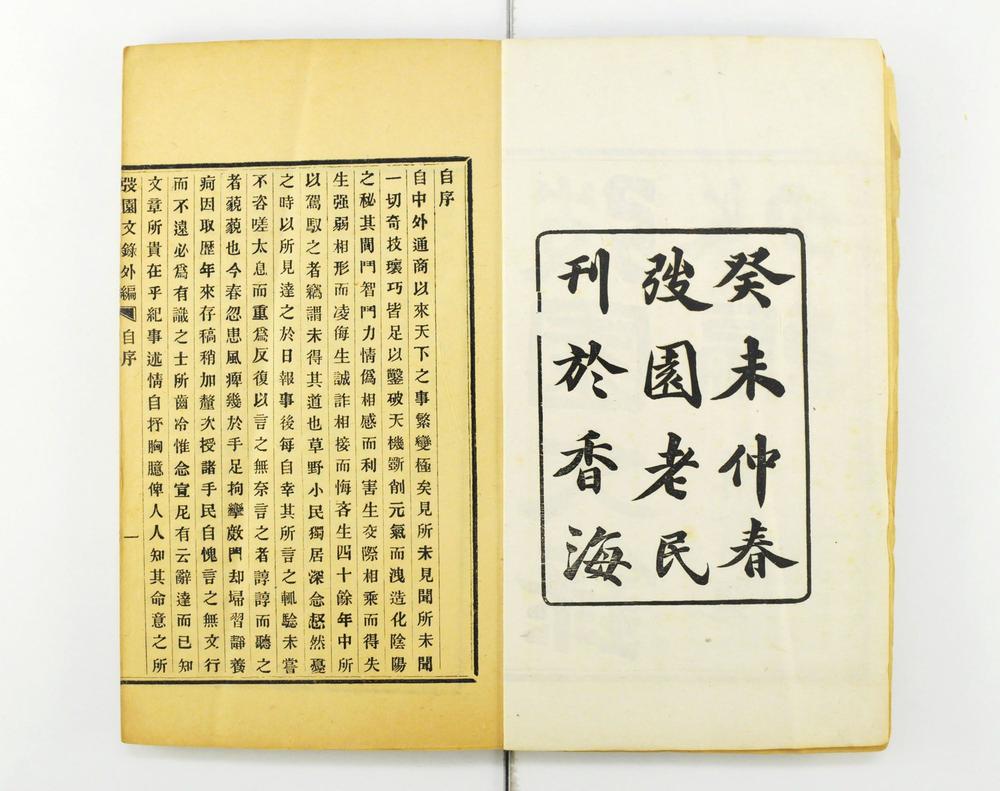 癸未仲春
弢園老民
刊於香海
自序
自中外通商以來天下之事繁變極矣見所未見聞所未聞
一切奇技瓌巧皆足以鑿破天機斵削元氣而洩造化陰陽
之秘其間鬥智鬥力情僞相感而利害生交際相乘而得失
生强弱相形而凌侮生誠詐相接而悔吝生四十餘年中所
以駕馭之者竊謂未得其道也草野小民獨居深念惄然憂
之時以所見達之於日報事後每自幸其所言之輒驗未嘗
不咨嗟太息而重爲反復以言之無奈言之者諄諄而聽之
者藐藐也今春忽患風痺幾於手足拘攣門却埽習靜養
疴因取歷年來存稿稍加釐次授諸手民自愧言之無文行
而不遠必爲有識之士所齒冷惟念宣尼有云辭達而已知
文章所貴在乎紀事述情自抒胸臆俾人人知其命意之所
弢園文錄外編 自序 一